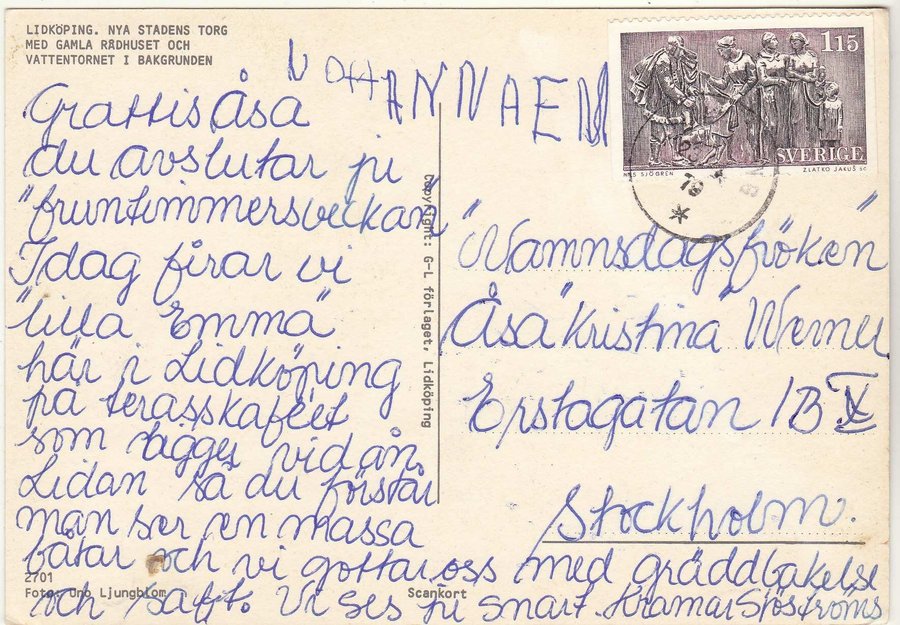 LIDKÖPING. NYA STADENS TORG
MED GAMLA RÅDHUSET OCH
VATTENTORNET I BAKGRUNDEN
1.15
SVERIGE
NILS SJÖGREN
ZLATKO JAKUŠ SC
79
ANNAEM
Grattis Åsa
du avslutar ju
"fruntimmersveckan"
Idag firar vi
"lilla Emma"
här i Lidköping
på terasskaféet
som ligger vid ån
Lidan så du förstår
man ser en massa
båtar och vi gottar oss med gräddbakelse
och saft. Vi ses ju snart. Kramar Sjöströms
"Namnsdagsfröken"
Åsa "Kristina" Werner
Erstagatan 1B
Stockholm.
Copyright: G-L förlaget, Lidköping
2701
Foto: Uno Ljungblom
Scankort